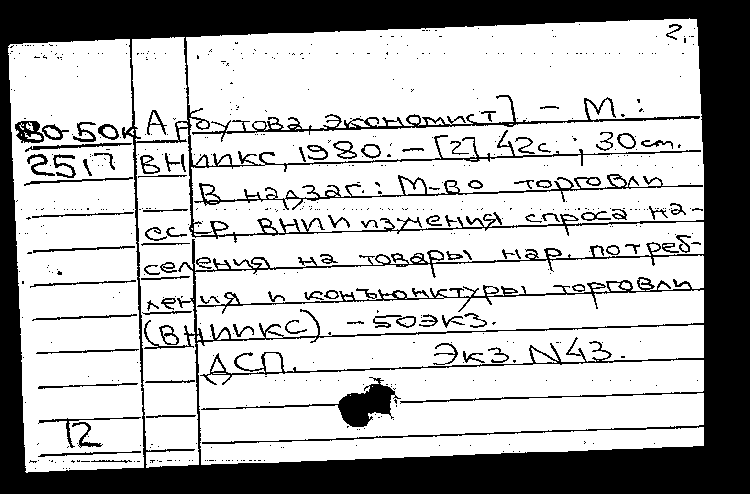 2.
80-50к Арбутова, экономист]. – М.:
2517 ВНИИКС, 1980. – [2], 42 с.; 30 см.
В надзаг.: М-во торговли
СССР, ВНИИ изучения спроса на-
селения на товары нар. потреб-
ления и конъюнктуры торговли
(ВНИИКС). – 50 экз.
ДСП. Экз. N 43.
12